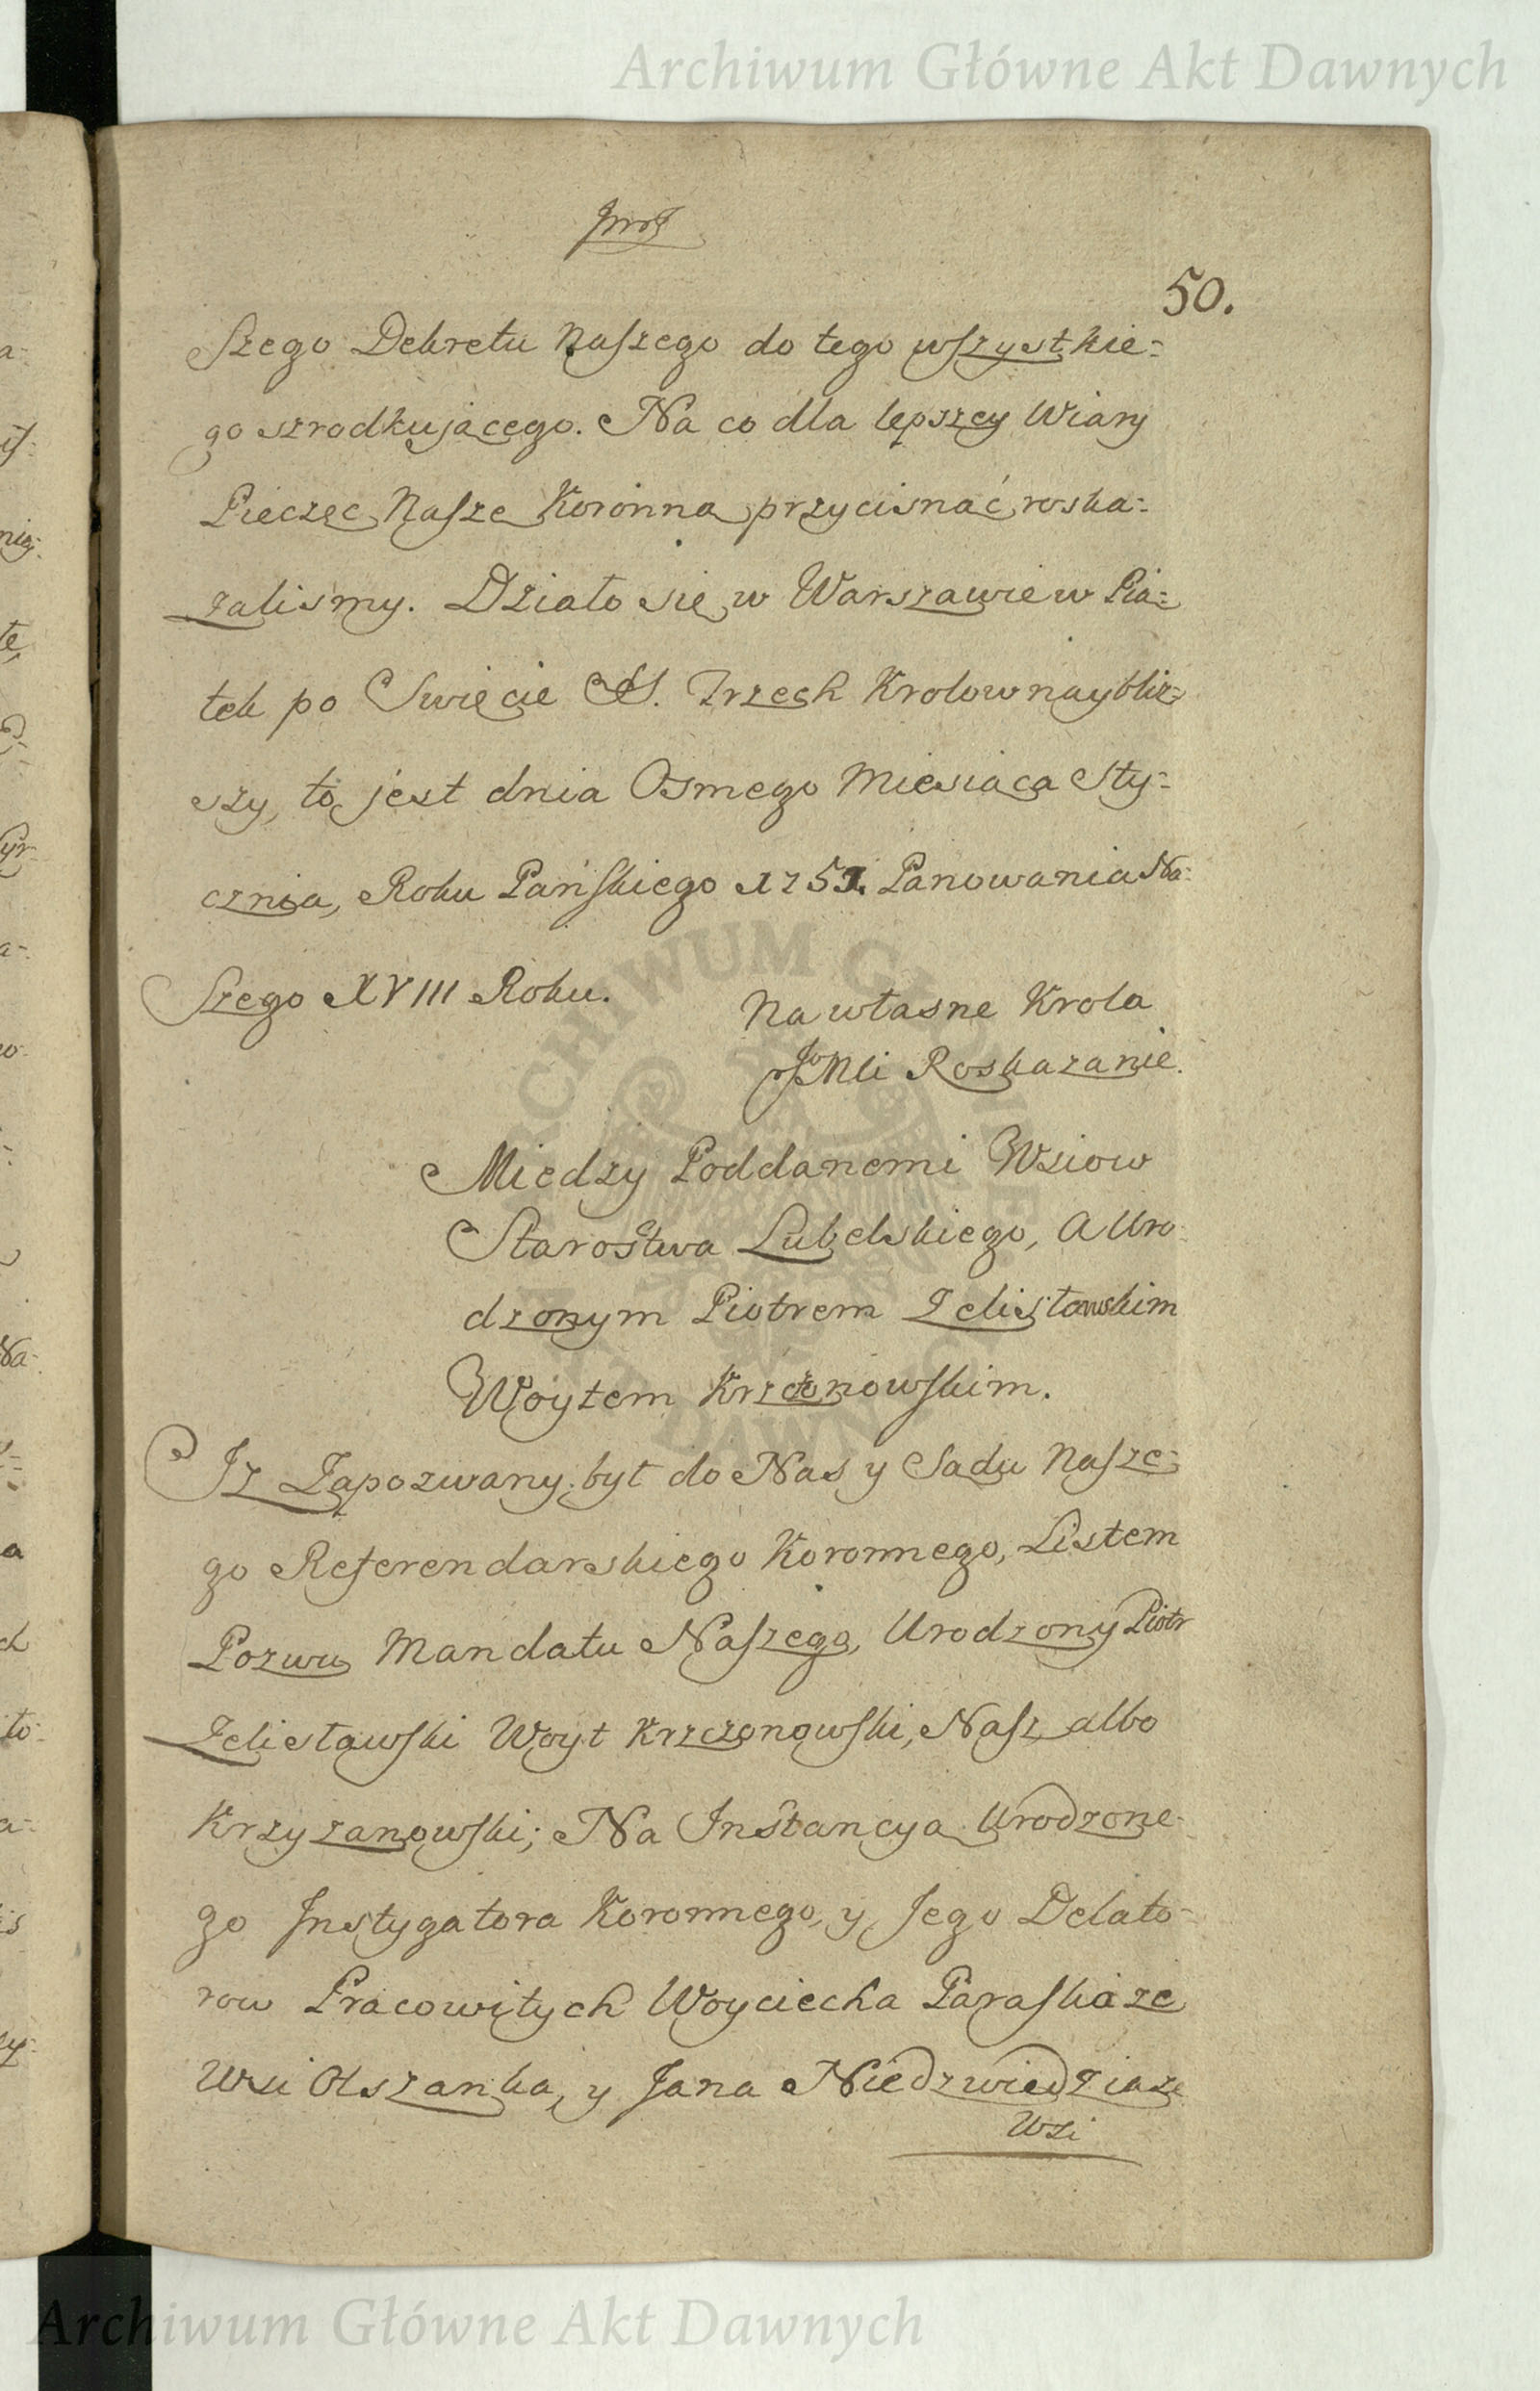 Archiwum Główne Akt Dawnych
50.
Szego Dekretu Naszego do tego wszystkie=
go szrodkującego. Na co dla lepszey Wiary
Pieczęć Naszę Koronną przycisnąć roska=
zalismy. Działo się w Warszawie w Pią=
tek po Swięcie SS. Trzech Krolow naybliz=
szy, to jest dnia Osmego Miesiąca Sty=
cznia, Roku Pańskiego 1751. Panowania Na=
Szego XVIII Roku.
Na własne Krola
JoMci Roskazanie.
Miedzy Poddanemi Wsiow
Starostwa Lubelskiego, a Uro=
dzonym Piotrem Zelisławskim
Woytem Krzczonowskim.
Iz Zapozwany był do Nas y Sądu Nasze=
go Referendarskiego Koronnego, Listem
Pozwu Mandatu Naszego, Urodzony Piotr
Zelisławski Woyt Krzczonowski, Nasz albo
Krzyzanowski; Na Instancyą Urodzone=
go Instygatora Koronnego, y Jego Delato=
row Pracowitych Woyciecha Paraska ze
Wsi Olszanka, y Jana Niedzwiedzia ze
Wsi
ARCHIWUM GŁÓWNE AKT DAWNYCH
Archiwum Główne Akt Dawnych